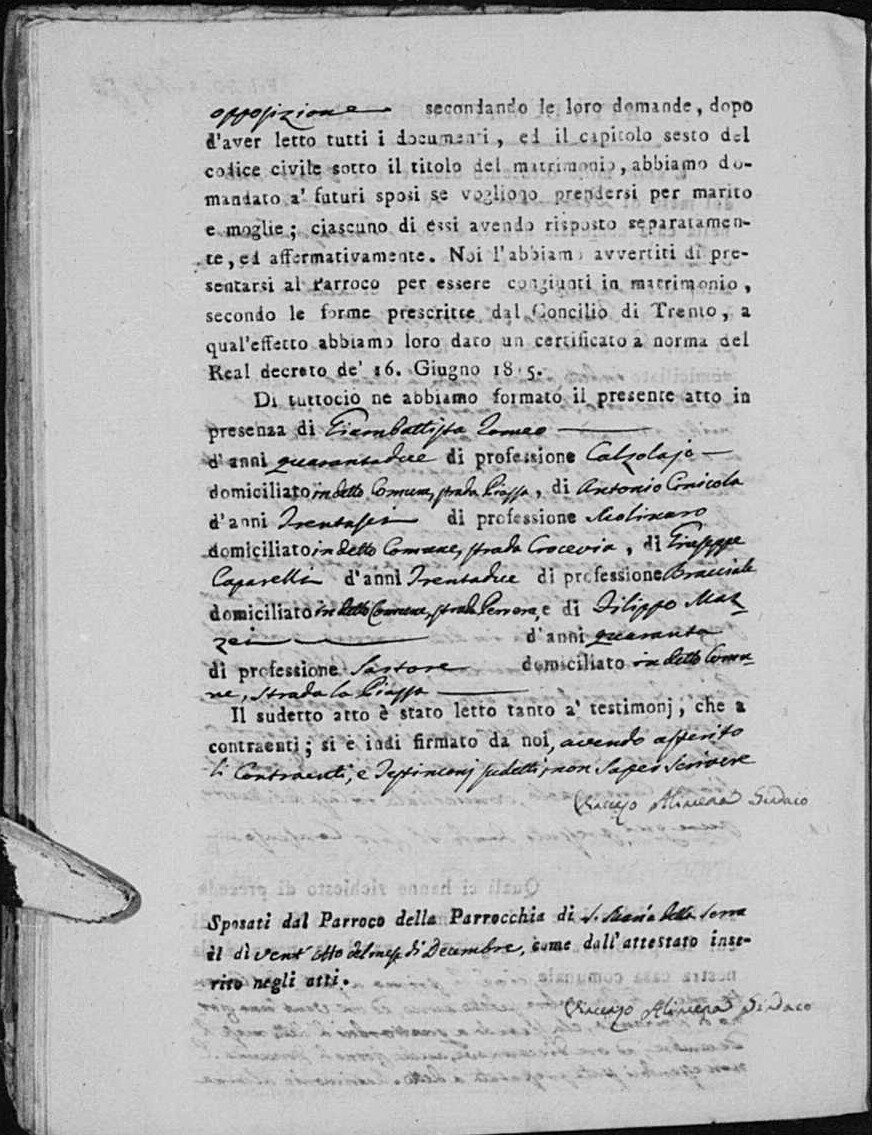 opposizione secondando le loro domande, dopo
d'aver letto tutti i documenti, ed il capitolo sesto del
codice civile sotto il titolo del matrimonio, abbiamo do-
mandato a' futuri sposi se vogliono prendersi per marito
e moglie; ciascuno di essi avendo risposto separatamen-
te, ed affermativamente. Noi l'abbiamo avvertiti di pre-
sentarsi al Parroco per essere congiunti in matrimonio,
secondo le forme prescritte dal Concilio di Trento, a
qual'effetto abbiamo loro dato un certificato a norma del
Real decreto de' 16. Giugno 1815.
Di tuttociò ne abbiamo formato il presente atto in
presenza di Giambattista Tomeo
d'anni quarantadue di professione Calzolajo
domiciliato in detto Comune, strada Piazza, di Antonio Cornicola
d'anni Trentasei di professione Molinaro
domiciliato in detto Comune, strada Crocevia, di Giuseppe
Caparelli d'anni Trentadue di professione Bracciale
domiciliato in detto Comune, strada e di Filippo Maz
zei d'anni quaranta
di professione Sartore domiciliato in detto Comu-
ne, strada la Piazza
Il sudetto atto è stato letto tanto a' testimonj, che a
contraenti; si è indi firmato da noi, avendo asserito
li Contraenti, e Testimonj sudetti, non saper scrivere
Vincenzo Alimena Sindaco
Quali ci hanno richiesto di procede
Sposati dal Parroco della Parrocchia di S. Maria della Serra
il dì vent'otto del mese di Decembre, come dall'attestato inse-
rito negli atti.
nostra casa comunale
Vincenzo Alimena Sindaco